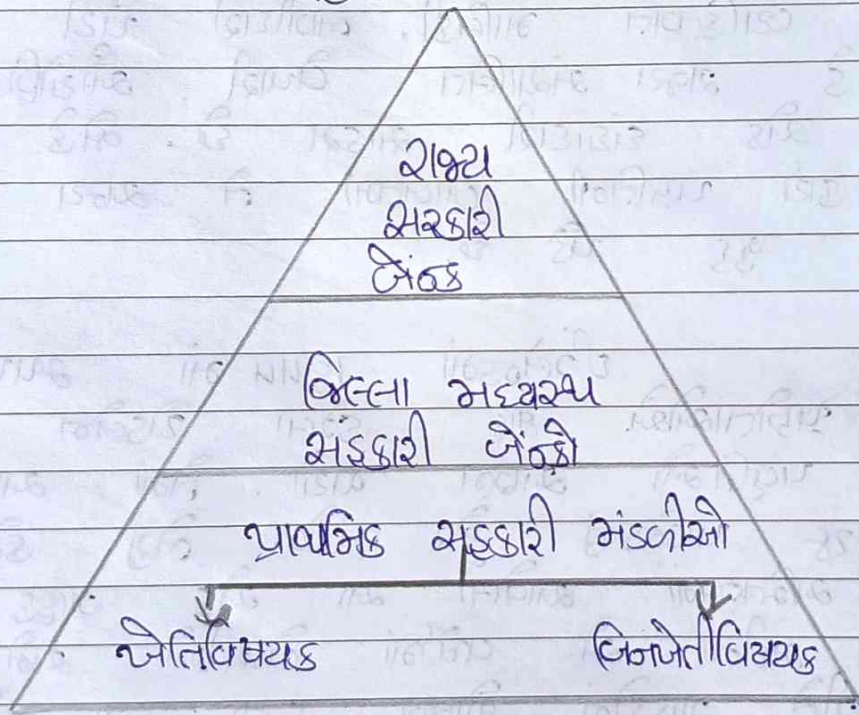 રાજ્ય
સરકારી
બેંન્ક
જિલ્લા મધ્યસ્થ
સંહકારી બેંન્કો
પ્રાથમિક સહકારી મંડળીઓ
ખેતિવિષયક બિનખેતીવિષયક